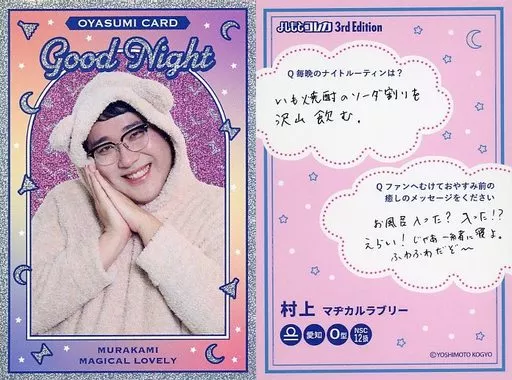 OYASUMI CARD
Good Night
MURAKAMI
MAGICAL LOVELY
よしもとコレカ 3rd Edition
Q 毎晩のナイトルーティンは?
いも焼酎のソーダ割りを
沢山飲む。
Q ファンへむけておやすみ前の
癒しのメッセージをください
お風呂入った? 入った!?
えらい! じゃあ一緒に寝よ。
ふわふわだぞ〜
村上 マヂカルラブリー
♎ 愛知 O型 NSC
12期
©YOSHIMOTO KOGYO